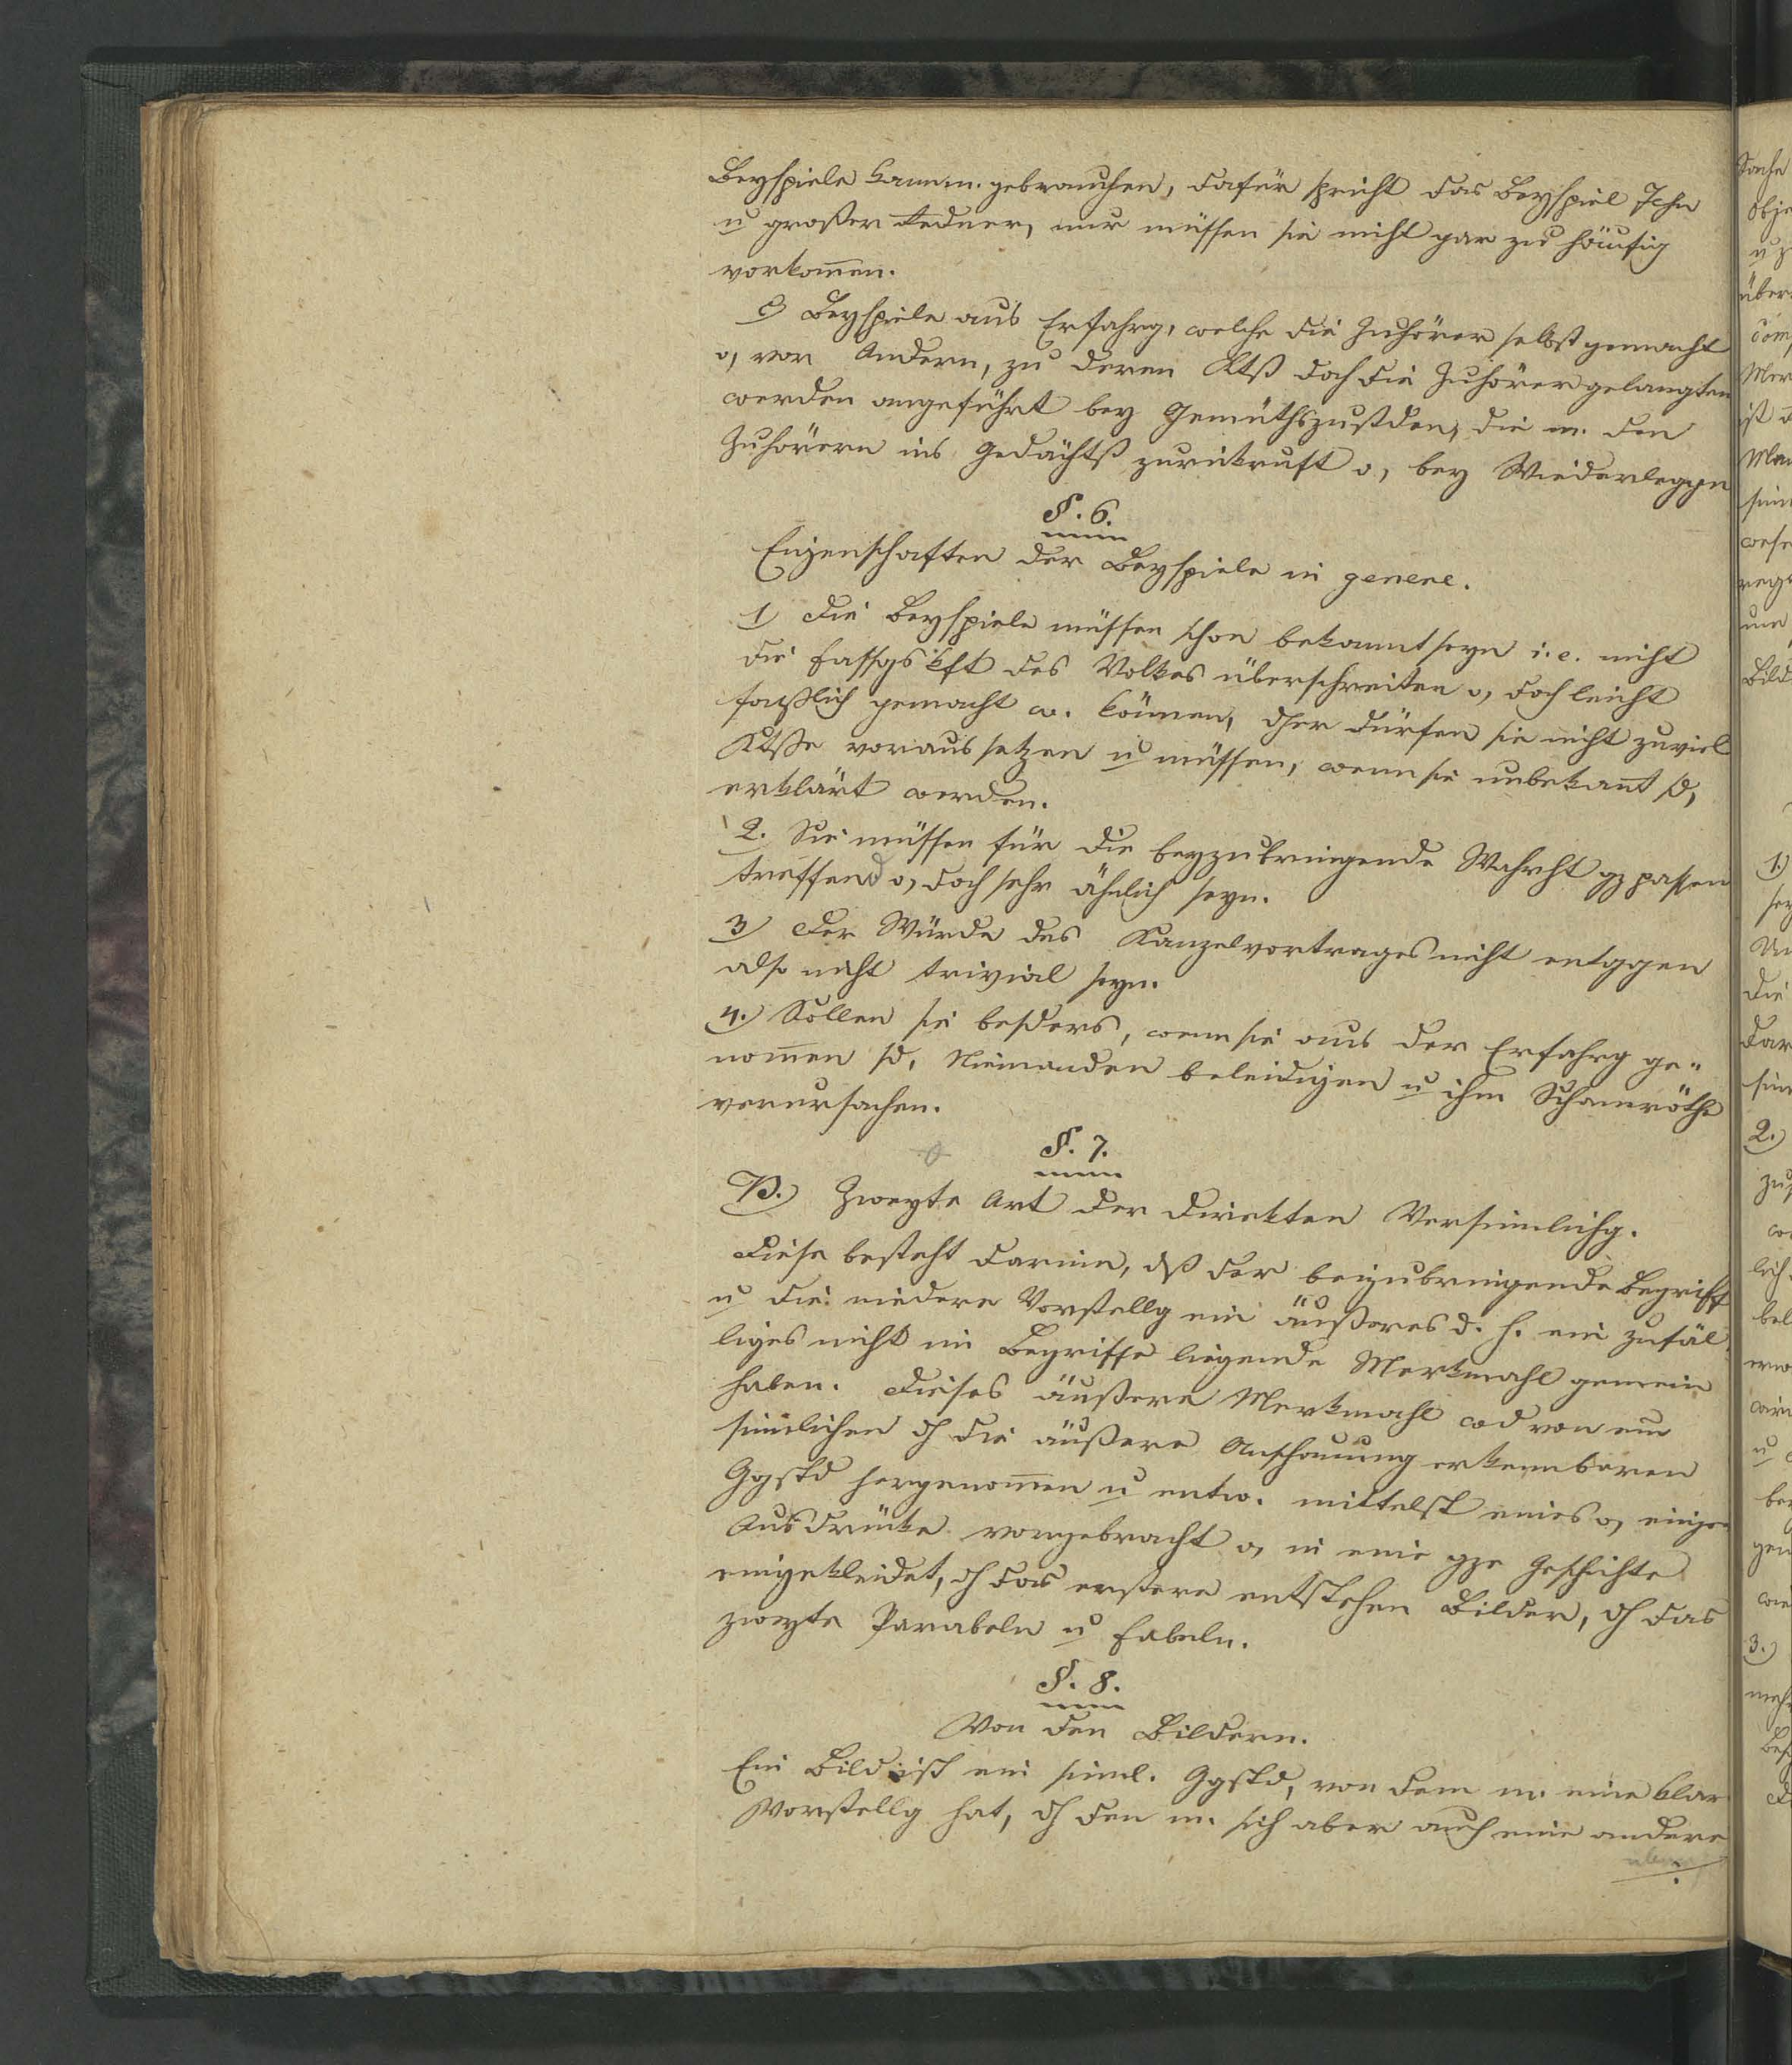 Beyspiele kann m. gebrauchen, dafür spricht das Beyspiel Jesu
u großer Redner, nur müssen sie nicht gar zu häufig
vorkom̅en.
c) Beyspiele aus Erfahrg, welche die Zuhörer selbst gemacht
o, von Andern, zu deren Ktß doch die Zuhörer gelangten
werden angeführt bey Gemüthszustden, die m. den
Zuhörern ins Gedächtß zurückruft o, bey Wiederleggn
§. 6.
Eigenschaften der Beyspiele in genere.
1) Die Beyspiele müssen schon bekannt seyn i. e. nicht
die Fassgskft des Volkes überschreiten o, doch leicht
faßlich gemacht w. können, dher dürfen sie nicht zuviel
Ktße voraussetzen u müssen, wenn sie unbekan̅t sd,
erklärt werden.
2. Sie müssen für die beyzubringende Wahrht gz passen
treffend o, doch sehr ähnlich seyn.
3) Der Würde des Kanzelvortrages nicht entggen
also nicht trivial seyn.
4.) Sollen sie besders, wenn sie aus der Erfahrg ge-
nom̅en sd, Niemanden beleidigen u ihm Schamröthe
verursachen.
§. 7.
B.) Zweyte Art der direkten Versinnlichg.
Diese besteht darinn, dß der beizubringende Begriff
u die niedere Vorstellg ein äußeres d. h. ein zufäl-
liges nicht im Begriffe liegende Merkmahl gemein
haben. Dieses äußere Merkmahl wd von em
sinnlichen dh die äußere Anschauung erkennbaren
Ggstd hergenom̅en u entw. mittelst eines o, einiger
Ausdrücke vorgebracht o, in eine gze Geschichte
eingekleidet, dh das erstere entstehen Bilder, dh das
zweyte Parabeln u Fabeln.
§. 8.
Von den Bildern.
Ein Bild ist ein sinnl. Ggstd, von dem m. eine klare
Vorstellg hat, dh den m. sich aber auch eine andere